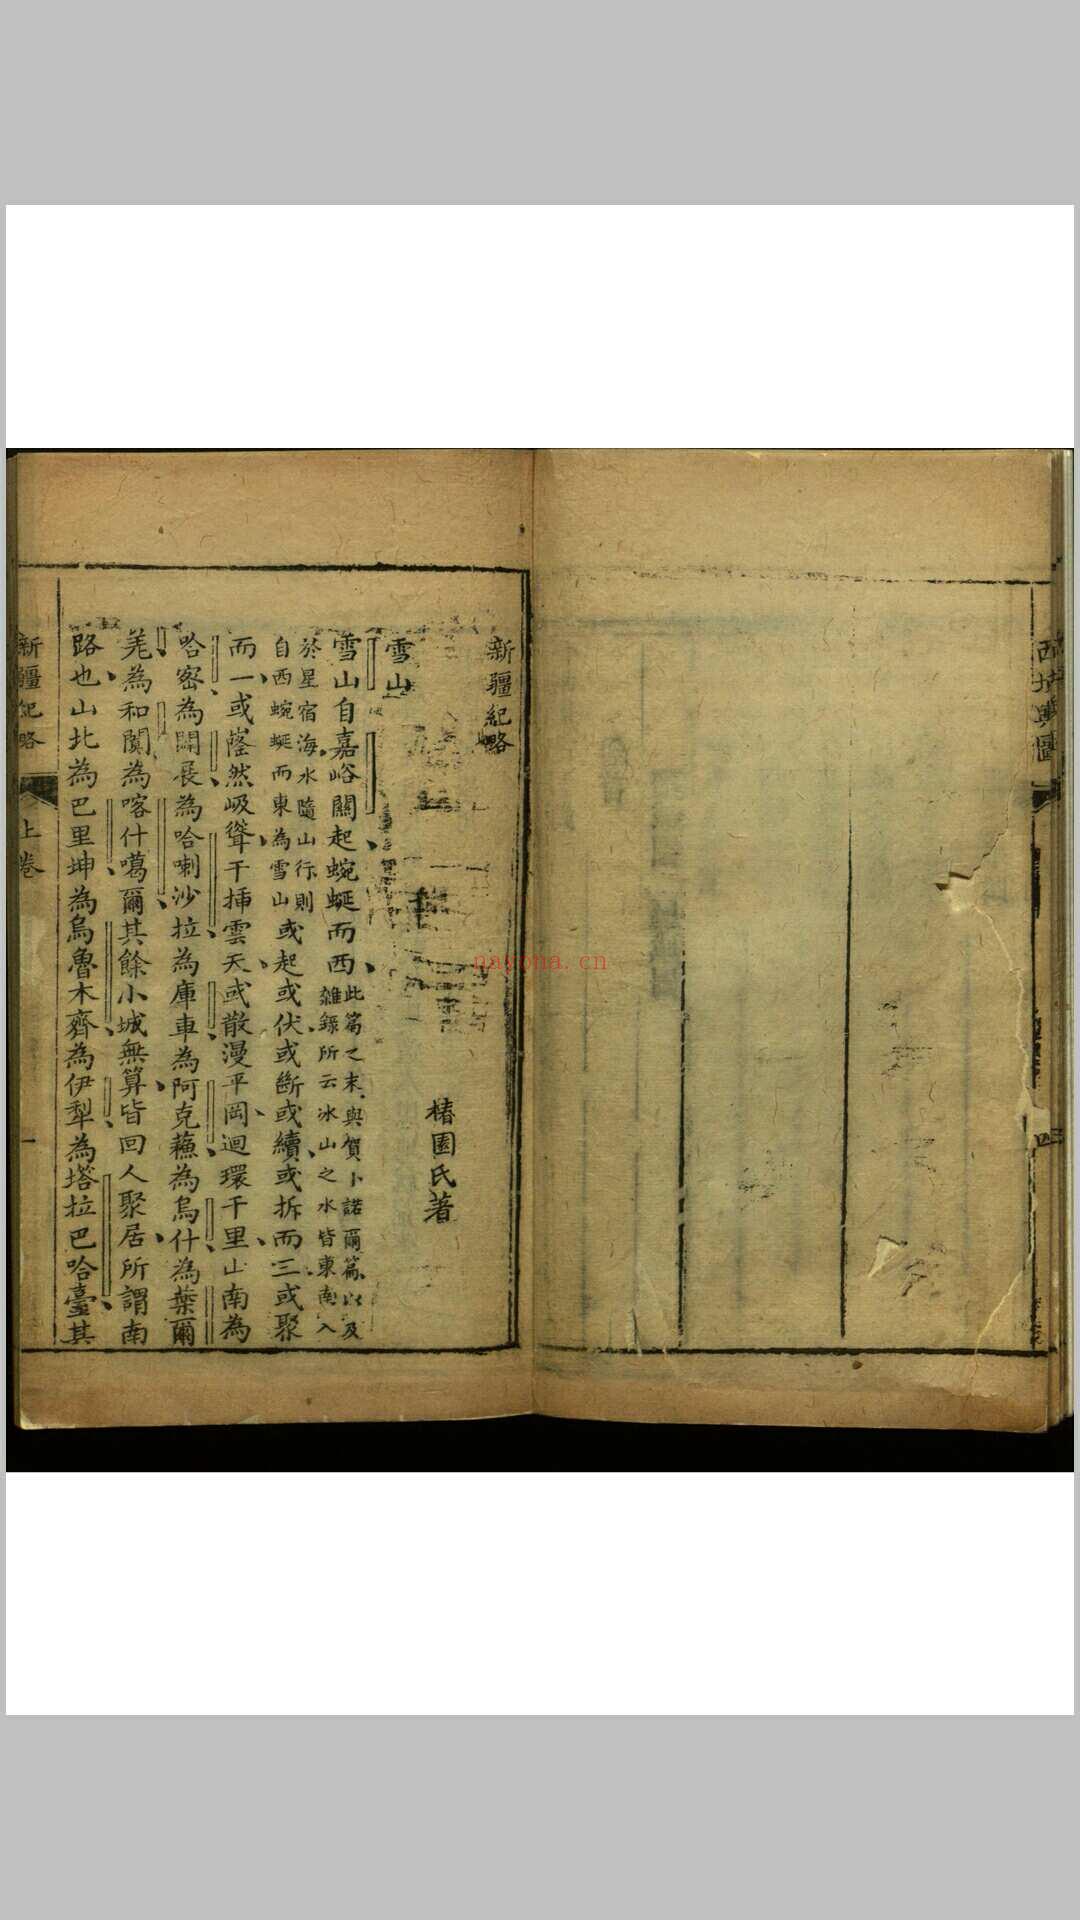 西域輿圖
四
新疆紀略
椿園氏著
雪山
雪山自嘉峪關起蜿蜒而西此篇之末與賀卜諾爾篇以及
雜錄所云冰山之水皆東南入
於星宿海水隨山行則
自西蜿蜒而東為雪山或起或伏或斷或續或拆而三或聚
而一或㟴然岋聳干揷雲天或散漫平岡迴環千里山南為
哈密為闢展為哈喇沙拉為庫車為阿克蘓為烏什為葉爾
羌為和闐為喀什噶爾其餘小城無算皆回人聚居所謂南
路也山北為巴里坤為烏魯木齊為伊犁為塔拉巴哈臺其
新疆紀略
上卷
一
nayona.cn